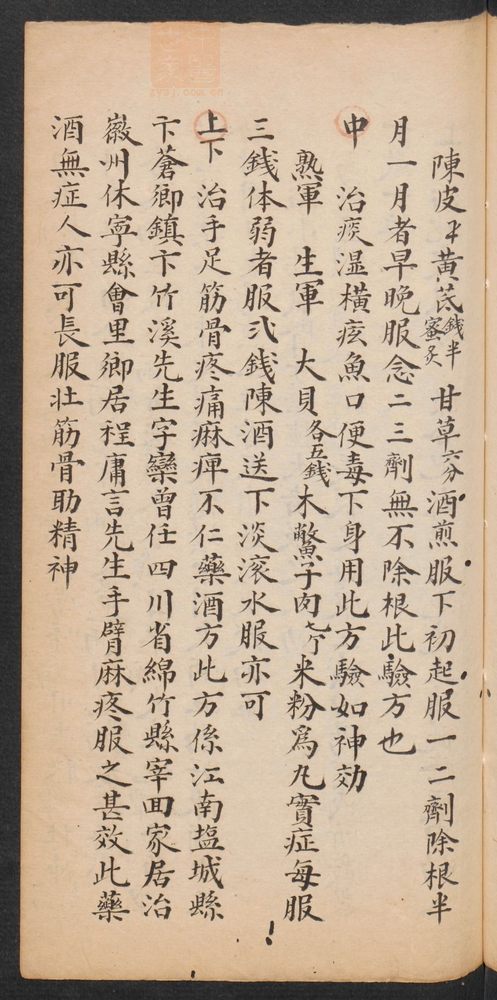 陳皮 黃茋錢半蜜炙 甘草六分 酒煎服下初起服一二劑除根半
月一月者早晚服念二三劑無不除根此驗方也
中 治痰湿橫痃魚口便毒下身用此方驗如神効
熟軍 生軍 大貝各五錢 木鱉子肉 米粉為丸實症每服
三錢体弱者服弍錢陳酒送下淡滚水服亦可
上下 治手足筋骨疼痛麻痺不仁藥酒方此方係江南塩城縣
卞蒼鄉鎮卞竹溪先生字欒曾任四川省綿竹縣宰回家居治
徽州休寧縣會里鄉居程庸言先生手臂麻疼服之甚效此藥
酒無症人亦可長服壮筋骨助精神